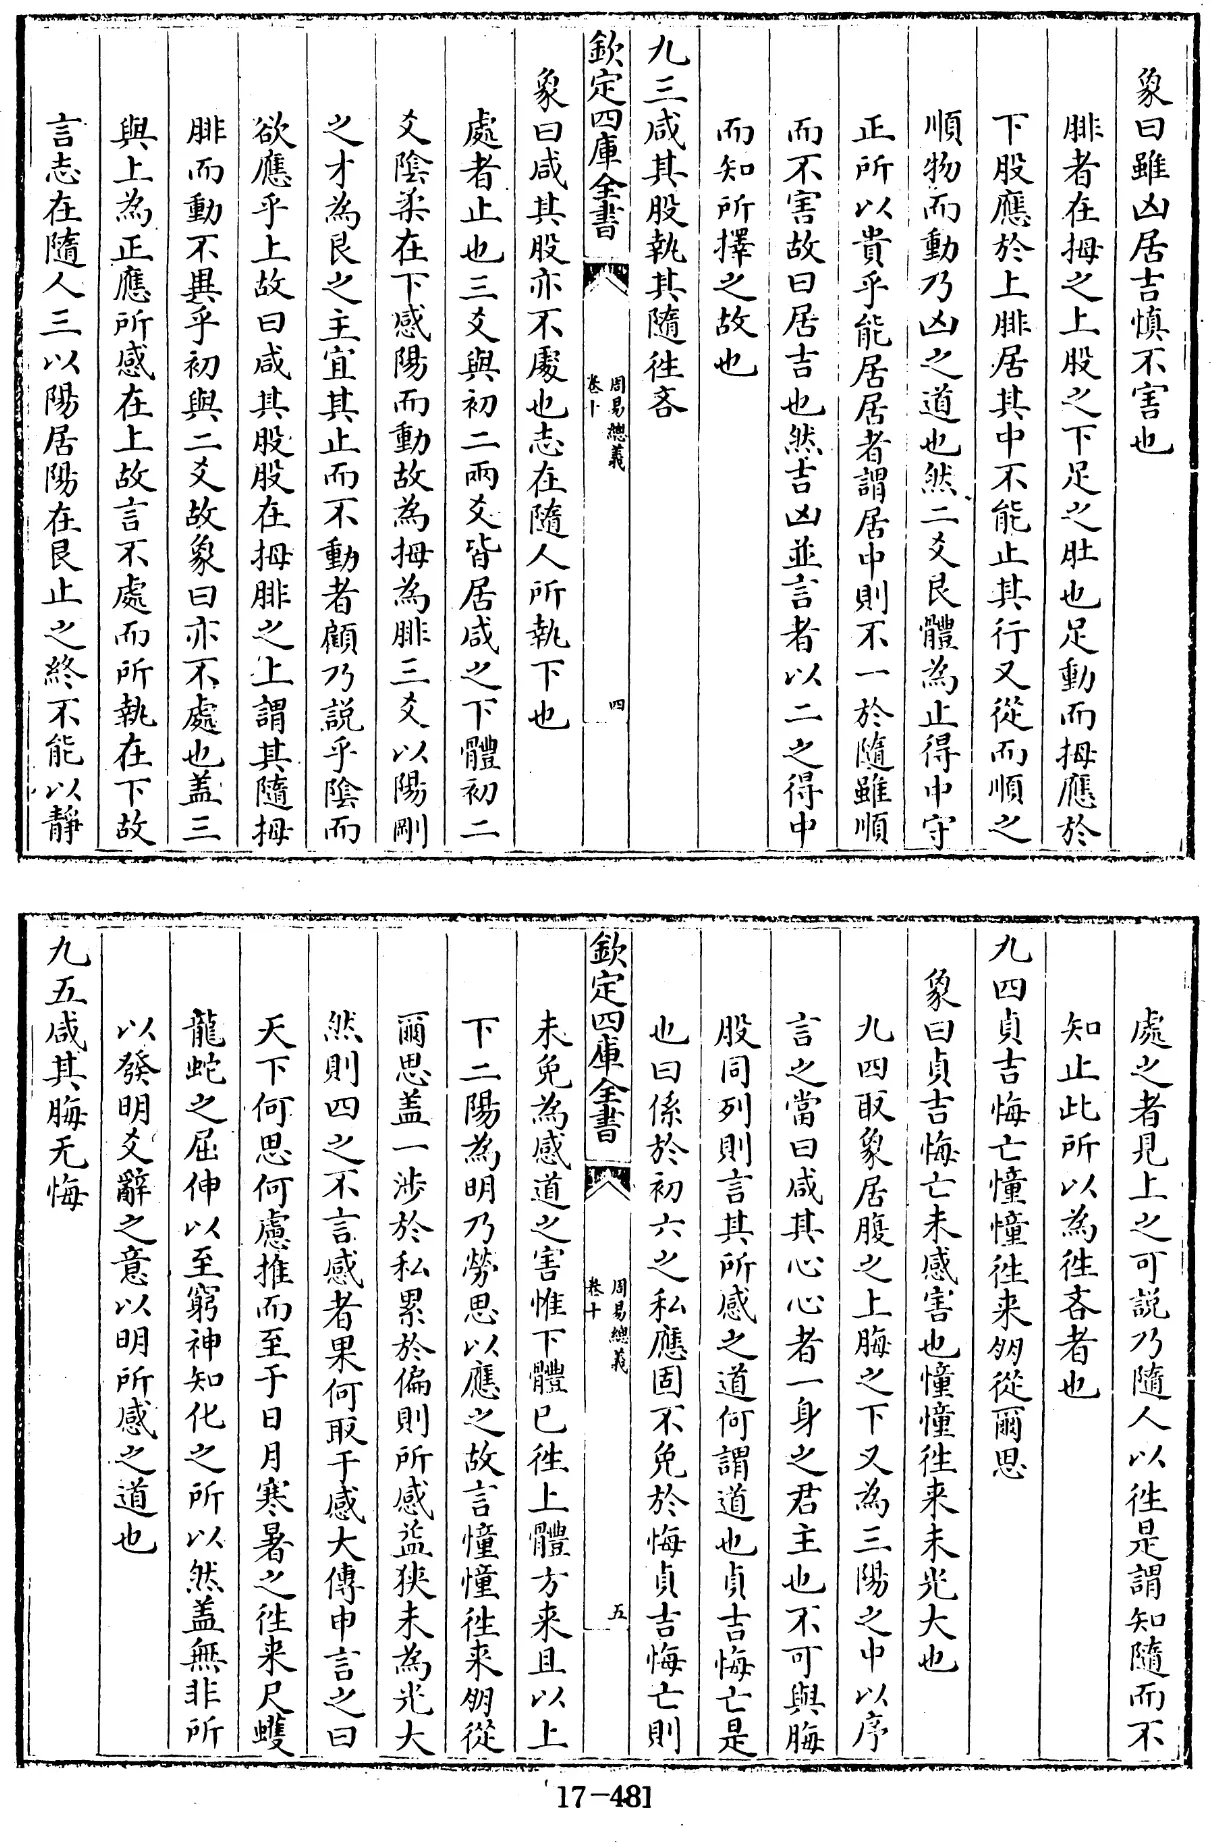 象曰雖凶居吉慎不害也
腓者在拇之上股之下足之肚也足動而拇應於
下股應於上腓居其中不能止其行又從而順之
順物而動乃凶之道也然二爻艮體為止得中守
正所以貴乎能居居者謂居中則不一於隨雖順
而不害故曰居吉也然吉凶並言者以二之得中
而知所擇之故也
九三咸其股執其隨徃吝
欽定四庫全書
周易總義
卷十
四
象曰咸其股亦不處也志在隨人所執下也
處者止也三爻與初二兩爻皆居咸之下體初二
爻陰柔在下感陽而動故為拇為腓三爻以陽剛
之才為艮之主宜其止而不動者顧乃説乎陰而
欲應乎上故曰咸其股股在拇腓之上謂其隨拇
腓而動不異乎初與二爻故象曰亦不處也盖三
與上為正應所感在上故言不處而所執在下故
言志在隨人三以陽居陽在艮止之終不能以靜
處之者見上之可説乃隨人以徃是謂知隨而不
知止此所以為徃吝者也
九四貞吉悔亡憧憧徃来朋從爾思
象曰貞吉悔亡未感害也憧憧徃来未光大也
九四取象居腹之上脢之下又為三陽之中以序
言之當曰咸其心心者一身之君主也不可與脢
股同列則言其所感之道何謂道也貞吉悔亡是
也曰係於初六之私應固不免於悔貞吉悔亡則
欽定四庫全書
周易總義
卷十
五
未免為感道之害惟下體已徃上體方来且以上
下二陽為明乃勞思以應之故言憧憧徃来朋從
爾思盖一涉於私累於偏則所感益狹未為光大
然則四之不言感者果何取于感大傳申言之曰
天下何思何慮推而至于日月寒暑之徃来尺蠖
龍蛇之屈伸以至窮神知化之所以然盖無非所
以發明爻辭之意以明所感之道也
九五咸其脢无悔
17-481